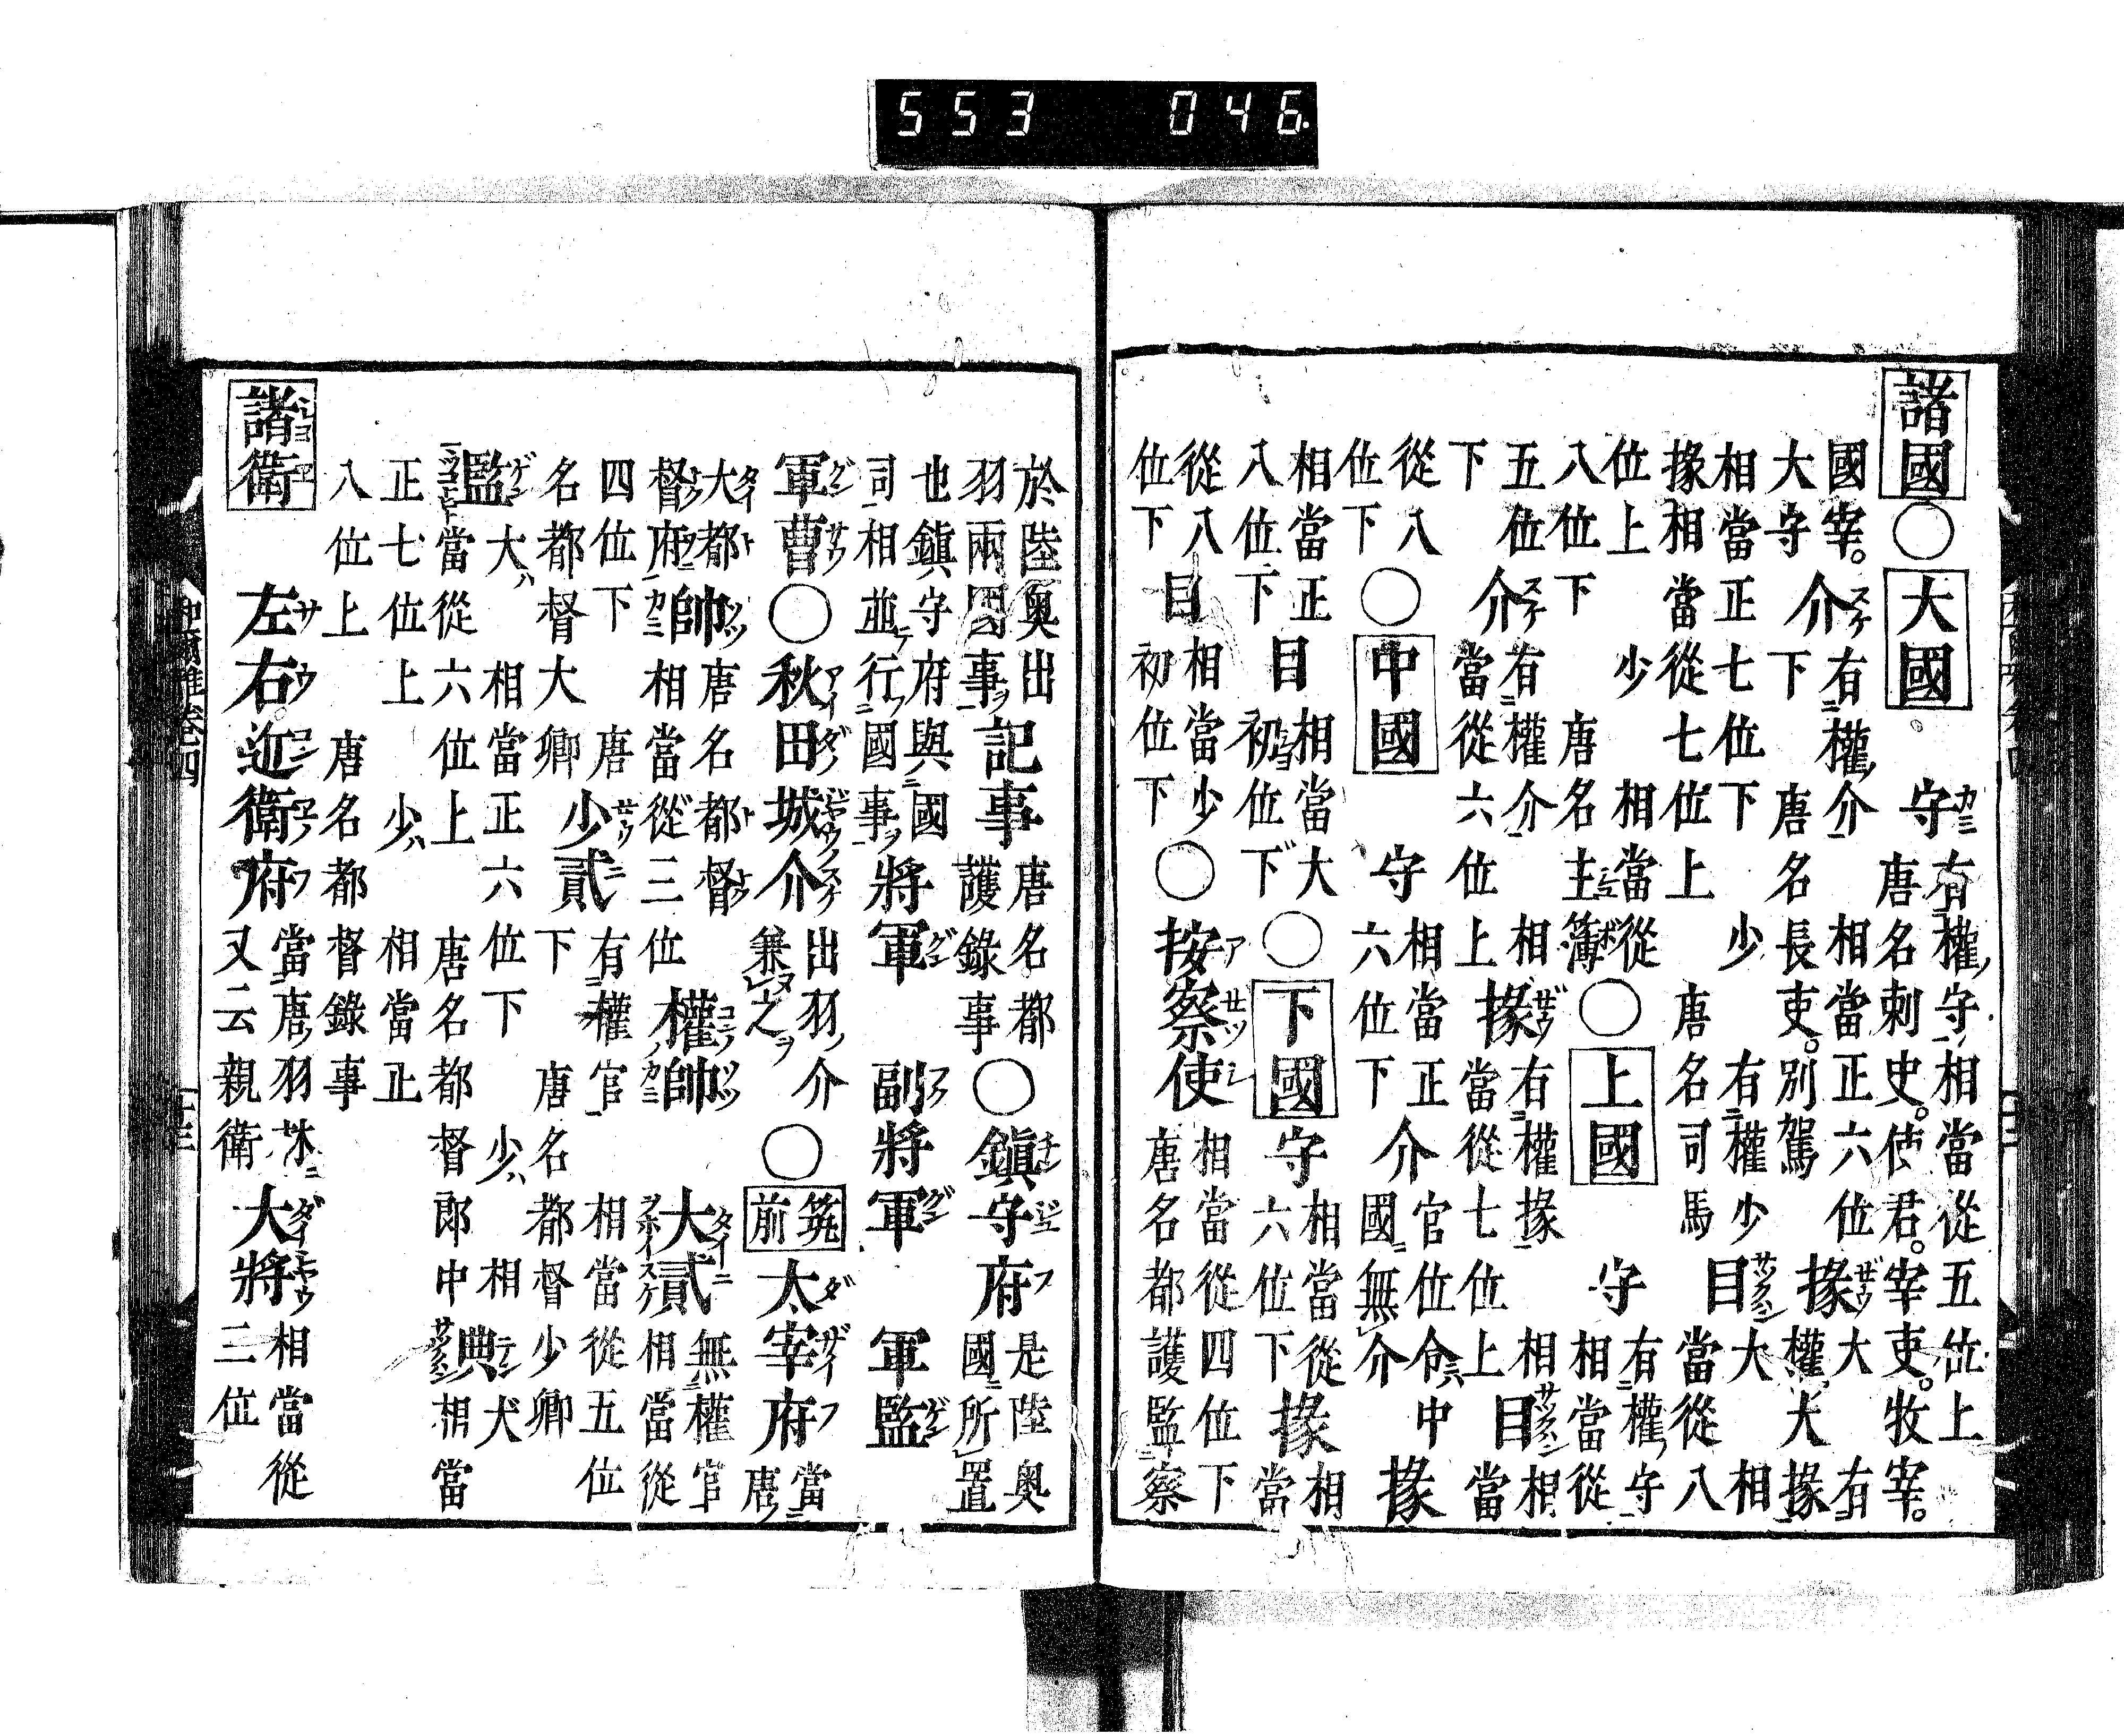 諸國○大國 守有權守相當從五位上唐名刺史。使君。宰吏。牧宰。
國宰。大守介有權介相當正六位下唐名長吏。別駕掾大有權大掾
相當正七位下少有權少掾相當從七位上唐名司馬目大相當從八
位上少相當從八位下唐名主簿○上國 守有權守相當從
五位下介有權介相當從六位上掾有權掾相當從七位上目相當
從八位下○中國 守相當正六位下介官位令ハ中國無介掾
相當正八位下目相當大初位下○下國守相當從六位下掾相當
從八位下目相當少初位下○按察使相當從四位下唐名都護監察
於陸奥出羽兩國事記事唐名都護錄事○鎮守府是陸奥國所置
也鎮守府與國司相並行國事將軍 副將軍 軍監
軍曹○秋田城介出羽介兼之○筑前太宰府當唐
大都督府帥唐名都督相當從三位權帥 大貳無權官相當從
四位下唐名都督大卿少貳有權官相當從五位下唐名都督少卿
監大相當正六位下少相當從六位上唐名都督郎中典大相當
正七位上少相當正八位上唐名都督錄事
諸衛 左右近衛府當唐羽林又云親衛大將相當從三位
和爾雅卷四
553 046